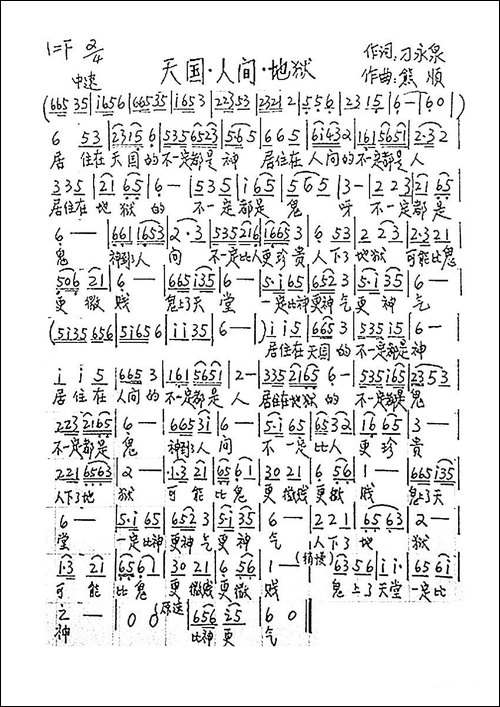 1=F 2/4
天国·人间·地狱
作词:刁永泉
作曲:熊 顺
中速
(665 35 | i656 | 66535 | i653 | 2253 | 2321 2 | 556 | 2315 | 6 — | 60 |)
6 53 | 2315 6 | 5356523 | 565 | 665 | 61432 | 1615651 | 2·32 |
居 住在天国的不一定都是神 居住在人间的不定是人
335 | 21 65 | 6 — | 535 | i65 | 565 | 3 — | 223 | 21 65 |
居住在地狱的 不一定都是鬼 呀 不一定都是
6 — | 661 1653 | 2·3 | 535216 | 16653 | 6 53 | 2 23 | 2·321 |
鬼 神到了人 间 不一定比人更珍贵 人下了地狱 可能比鬼
506 21 | 6 — | 665i35 | 6 — | 5·i65 | 652 3 | 5·i35 | 6 — |
更微贱 鬼上了天堂 一定比神更神气更神气
(5i35 656 | 5i65 6 | ii35 | 6 — |) ii5 | 665 3 | 535 i5 | 6 — |
居住在天国的不一定都是神
i i 5 | 665 3 | 1615651 | 2 — | 3352165 | 6 — | 535i65 | 2353 |
居住在人间的不定是人 居住在地狱的 不一定都是鬼
2232165 | 6 — | 6653i | 6 — | 5·i65 | 6532 | i6 65 | 3 — |
不一定都是鬼 神到了人间 不一定比人更珍贵
2216563 | 2 — | ·1·3 21 | 65 61 | 30 21 | 6 56 | 1 — | 665i35 |
人下了地狱 可能比鬼更微贱更微贱 鬼上了天
6 — | 5·i65 | 652 3 | 5·i35 | 6 — | 221 | 65 63 | 2 — |
堂 一定比神更神气更神气 人下了地狱
(稍慢)
1·3 21 | 65 61 | 30 21 | 6 56 | 1 — | 6356 | ii· | 65 6i |
可能比鬼更微贱更微贱 鬼上了天堂一定比
2 — | 0 0 | 原速 656 i5 | 6 0 ‖
神 比神更气